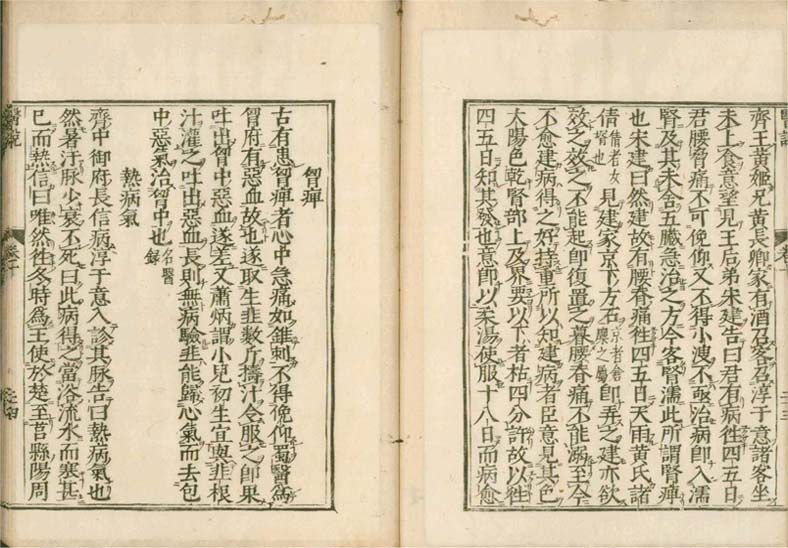 齊王黃姬兄黃長卿家有酒召客召淳于意諸客坐
未上食意望見王后弟宋建告曰君有病徃四五日
君腰脅痛不可俛仰又不得小溲不亟治病即入濡
腎及其未舍五臟急治之方今客腎濡此所謂腎痺
也宋建曰然建故有腰脊痛徃四五日天雨黃氏諸
倩倩者女壻也見建家京下方石京者倉廩之屬即弄之建亦欲
效之效之不能起即復置之暮腰脊痛不能溺至今
不愈建病得之好持重所以知建病者臣意見其色
太陽色乾腎部上及界要以下者枯四分許故以徃
四五日知其發也意即以柔湯使服十八日而病愈
胷痺
古有患胷痺者心中急痛如錐刺不得俛仰蜀醫爲
胷府有惡血故也遂取生韭數斤擣汁令服之即果
吐出胷中惡血遂差又蕭炳謂小兒初生宜與韭根
汁灌之吐出惡血長則無病驗韭能歸心氣而去包
中惡氣治胷中也名醫錄
熱病氣
齊中御府長信病淳于意入診其脉告曰熱病氣也
然暑汗脉少衰不死曰此病得之當浴流水而寒甚
已而熱信曰唯然徃冬時爲王使於楚至莒縣陽周
醫說
卷十